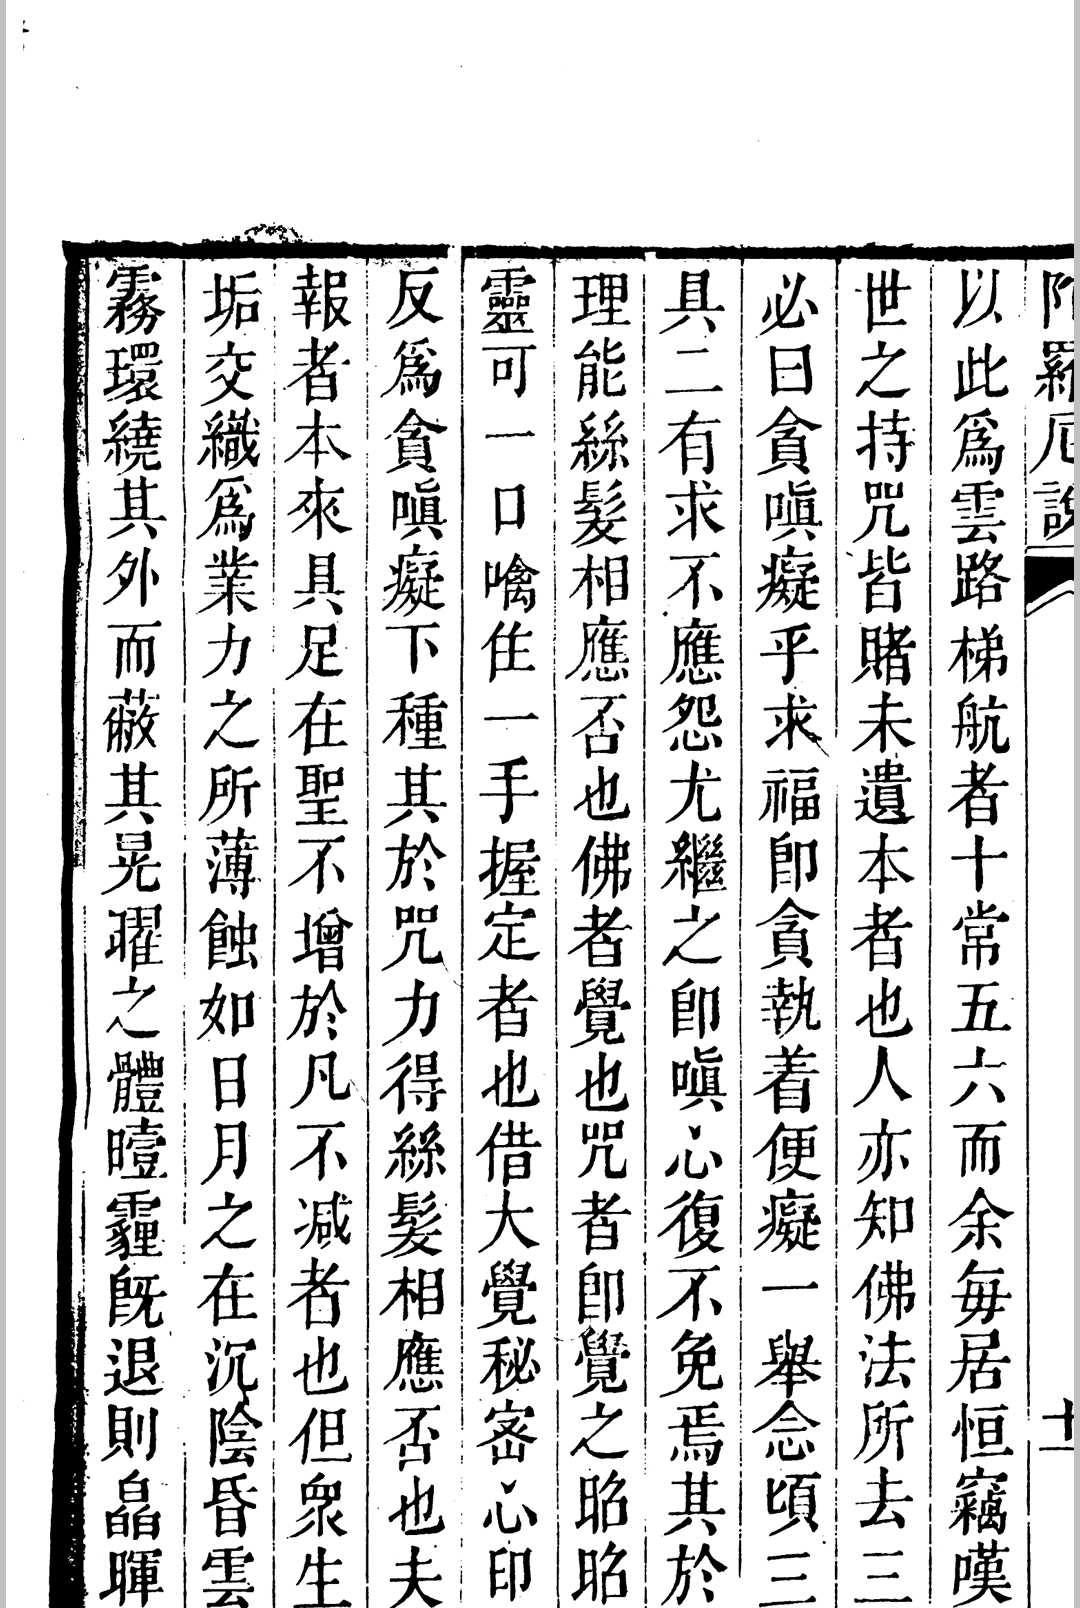 羅尼說
以此爲雲路梯航者十常五六而余每居恒竊嘆
世之持咒皆賭未遺本者也人亦知佛法所去三
必曰貪嗔癡乎求福卽貪執着便癡一舉念頃三
具二有求不應怨尤繼之卽嗔心復不免焉其於
理能絲髮相應否也佛者覺也咒者卽覺之昭昭
靈可一口噙住一手握定者也借大覺秘密心印
反爲貪嗔癡下種其於咒力得絲髮相應否也夫
報者本來具足在聖不增於凡不减者也但衆生
垢交織爲業力之所薄蝕如日月之在沉陰昏雲
霧環繞其外而蔽其晃曜之體曀霾旣退則皛暉